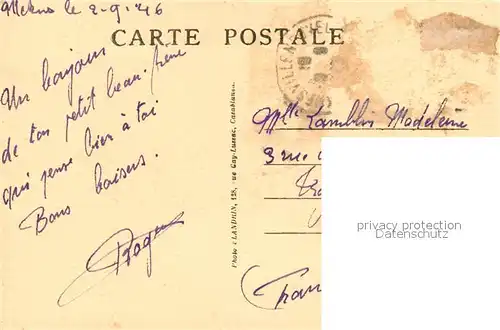 Meknès le 2-9-46
CARTE POSTALE
Un bonjour
de ton petit beau-frère
qui pense bien à toi
Bons baisers.
Roger
Photo : FLANDRIN, 128, rue Gay-Lussac, Casablanca.
Mlle Lamblin Madeleine
3 rue
privacy protection
Datenschutz
(Fran